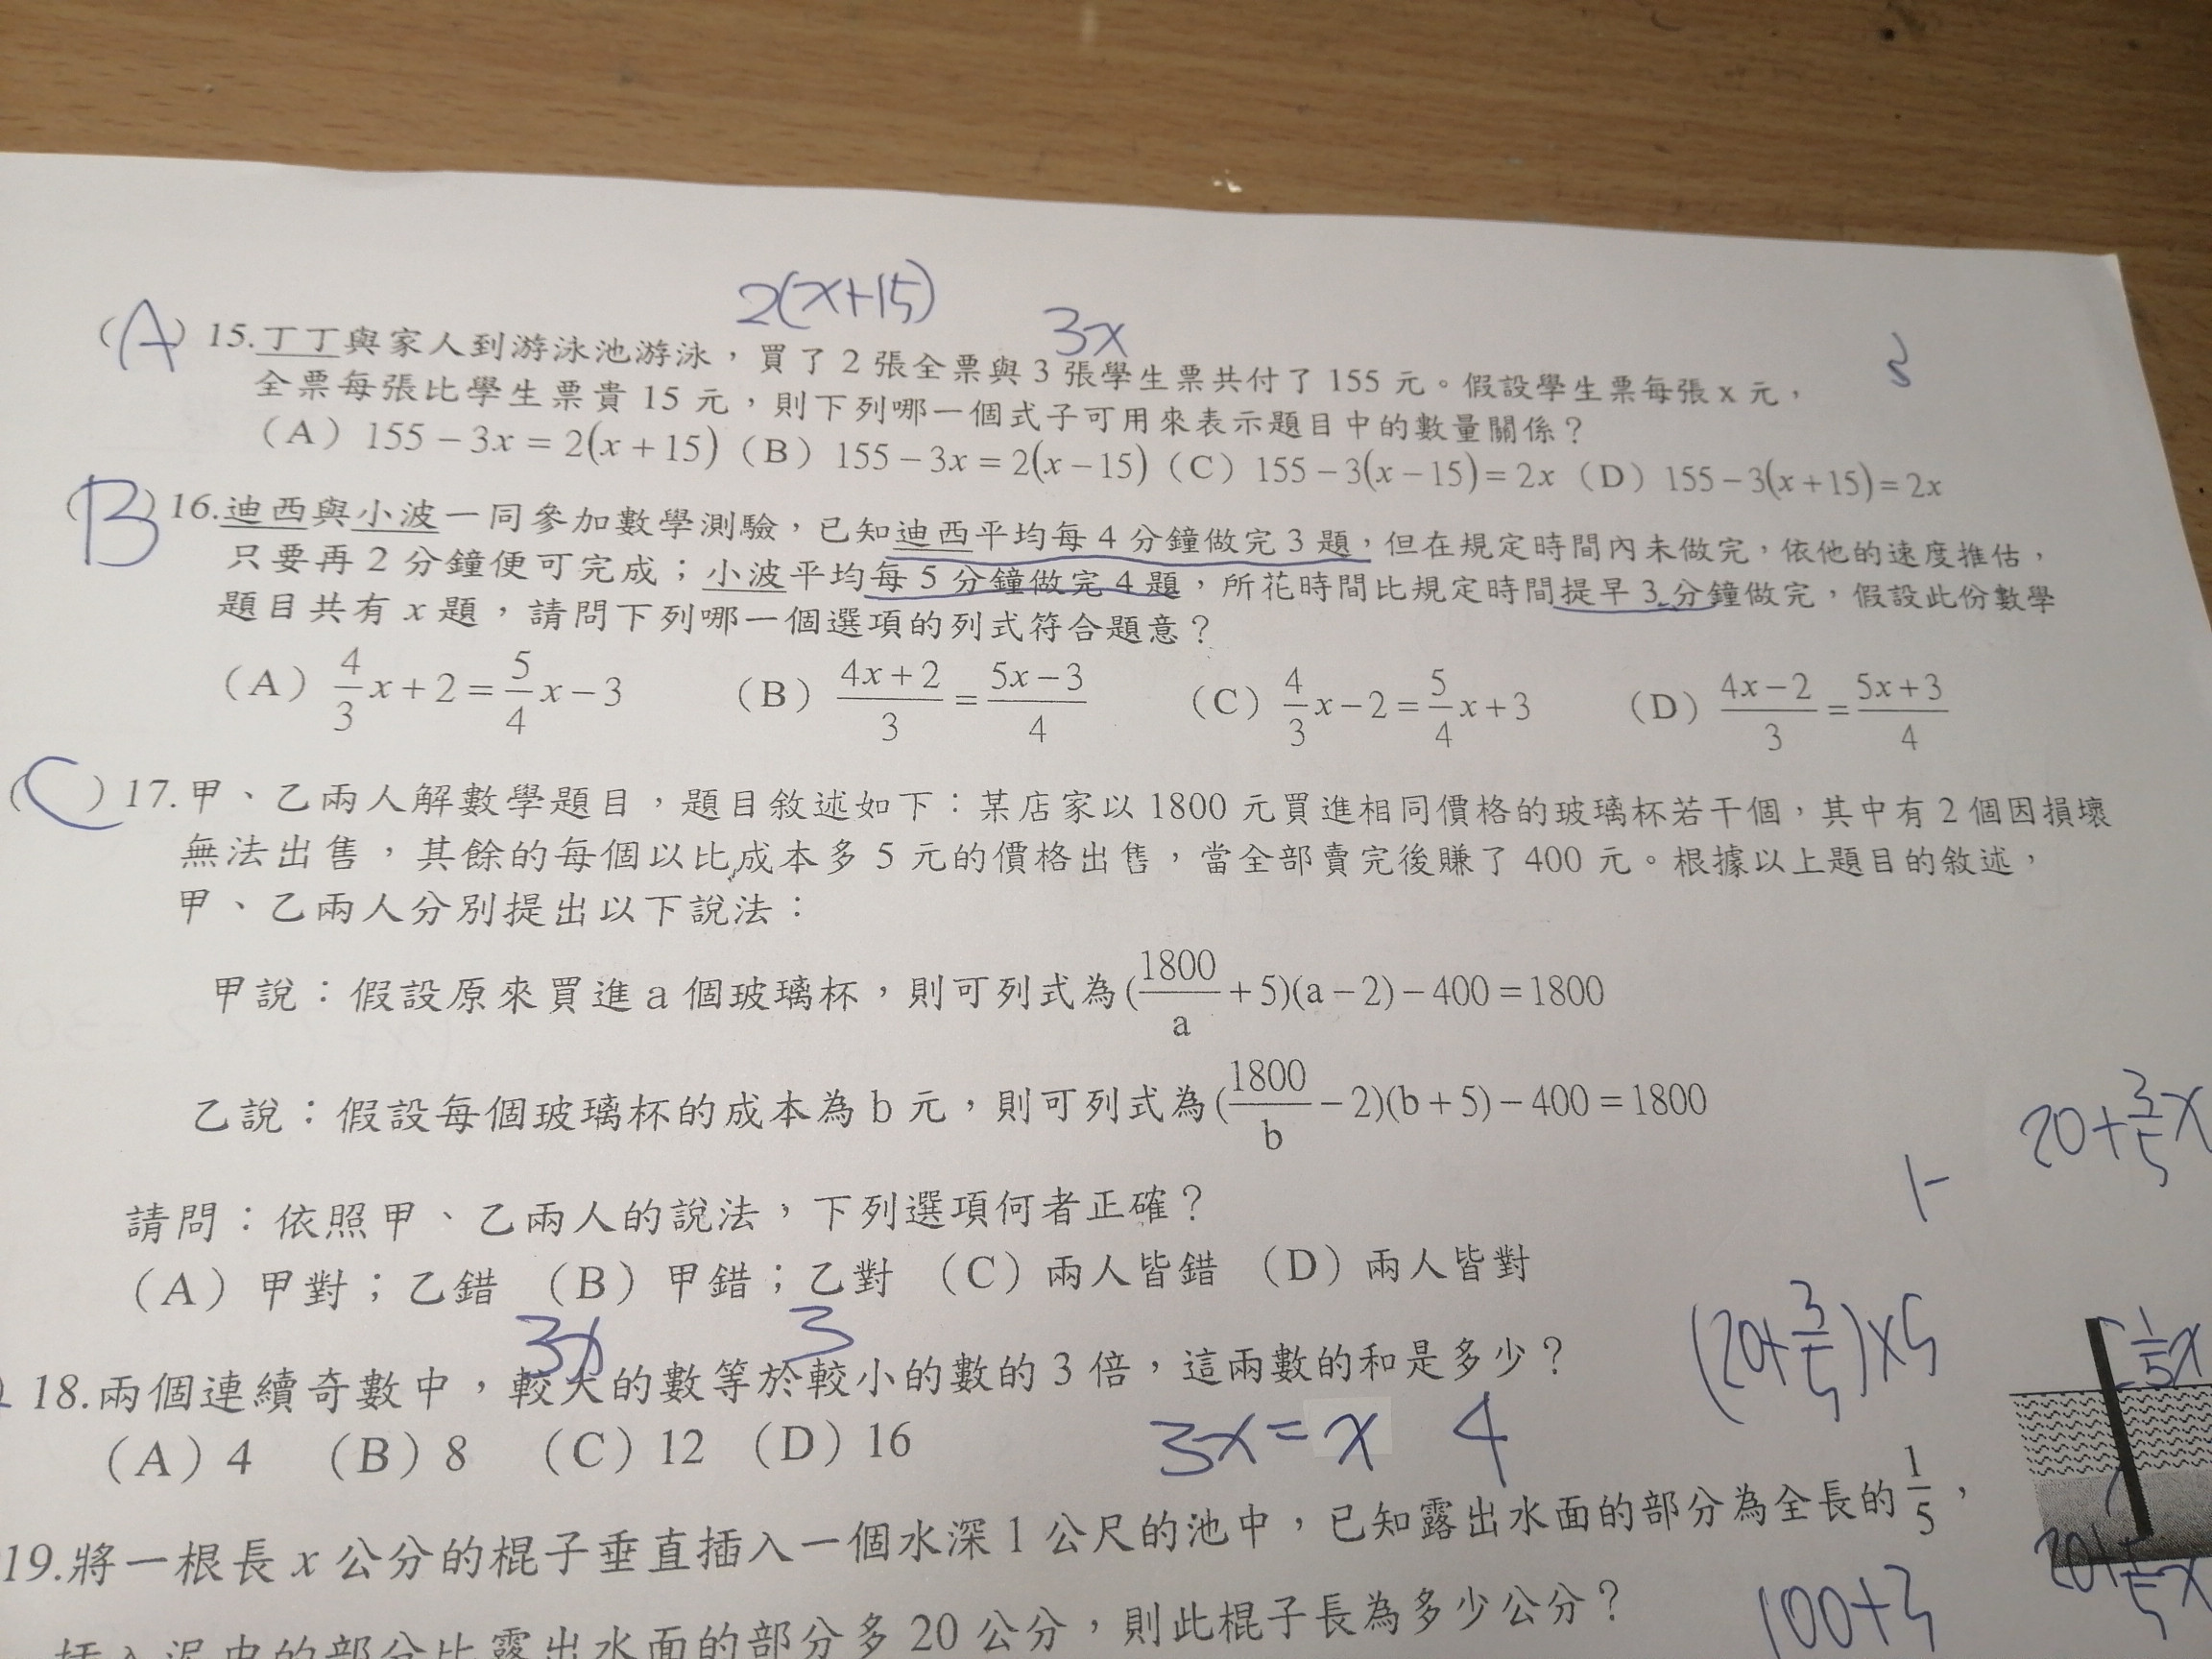 2(x+15)
3x
(A) 15.丁丁與家人到游泳池游泳，買了2張全票與3張學生票共付了155元。假設學生票每張x元，
3
全票每張比學生票貴15元，則下列哪一個式子可用來表示題目中的數量關係？
（A）155－3x＝2(x＋15)（B）155－3x＝2(x－15)（C）155－3(x－15)＝2x（D）155－3(x＋15)＝2x
(B) 16.迪西與小波一同參加數學測驗，已知迪西平均每4分鐘做完3題，但在規定時間內未做完，依他的速度推估，
只要再2分鐘便可完成；小波平均每5分鐘做完4題，所花時間比規定時間提早3分鐘做完，假設此份數學
題目共有x題，請問下列哪一個選項的列式符合題意？
（A）4/3 x＋2＝5/4 x－3 （B）(4x＋2)/3＝(5x－3)/4 （C）4/3 x－2＝5/4 x＋3 （D）(4x－2)/3＝(5x＋3)/4
(C) 17.甲、乙兩人解數學題目，題目敘述如下：某店家以1800元買進相同價格的玻璃杯若干個，其中有2個因損壞
無法出售，其餘的每個以比成本多5元的價格出售，當全部賣完後賺了400元。根據以上題目的敘述，
甲、乙兩人分別提出以下說法：
甲說：假設原來買進a個玻璃杯，則可列式為(1800/a＋5)(a－2)－400＝1800
乙說：假設每個玻璃杯的成本為b元，則可列式為(1800/b－2)(b＋5)－400＝1800
20+3/5x
1-
請問：依照甲、乙兩人的說法，下列選項何者正確？
（A）甲對；乙錯 （B）甲錯；乙對 （C）兩人皆錯 （D）兩人皆對
3x 3
(20+3/5)×5
1/5x
18.兩個連續奇數中，較大的數等於較小的數的3倍，這兩數的和是多少？
（A）4 （B）8 （C）12 （D）16
3x=x 4
19.將一根長x公分的棍子垂直插入一個水深1公尺的池中，已知露出水面的部分為全長的1/5，
20+1/5x
100+3
插入泥中的部分比露出水面的部分多20公分，則此棍子長為多少公分？